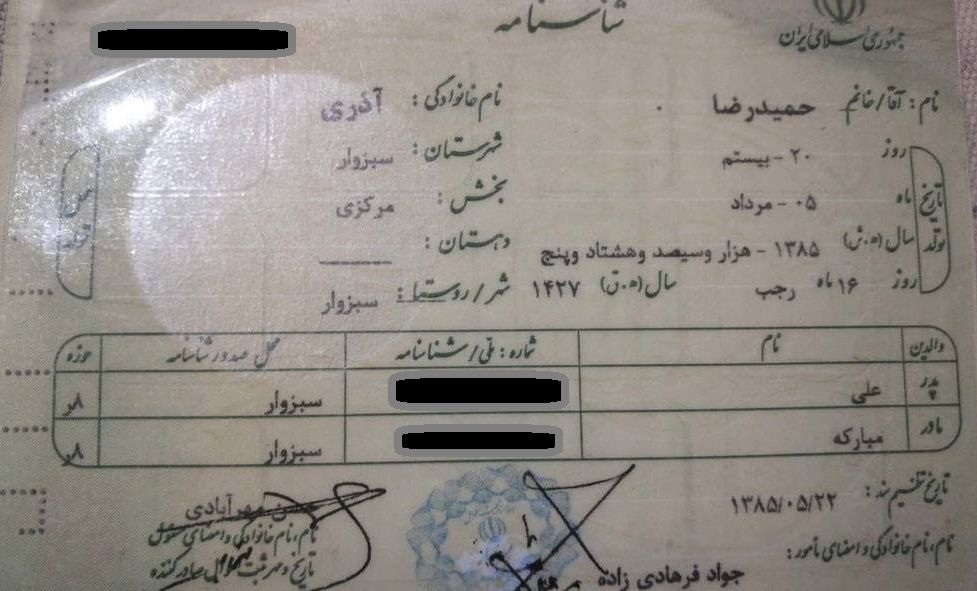 شناسنامه
جمهوری اسلامی ایران
نام: آقا/خانم حمیدرضا نام خانوادگی: آذری
روز ۲۰ - بیستم شهرستان: سبزوار
تاریخ تولد ماه ۰۵ - مرداد بخش: مرکزی
سال (ه.ش) ۱۳۸۵ - هزار وسیصد وهشتاد وپنج دهستان:
روز ۱۶ ماه رجب سال (ه.ق) ۱۴۲۷ شهر/روستا: سبزوار
محل تولد
والدین نام شماره: ملی/شناسنامه محل صدور شناسنامه حوزه
پدر علی سبزوار ۸ر
مادر مبارکه سبزوار ۸ر
تاریخ تنظیم سند: ۱۳۸۵/۰۵/۲۲
نام، نام خانوادگی و امضای مامور: جواد فرهادی زاده
مهرآبادی
نام، نام خانوادگی و امضای مسئول
تاریخ و مهر ثبت احوال صادرکننده